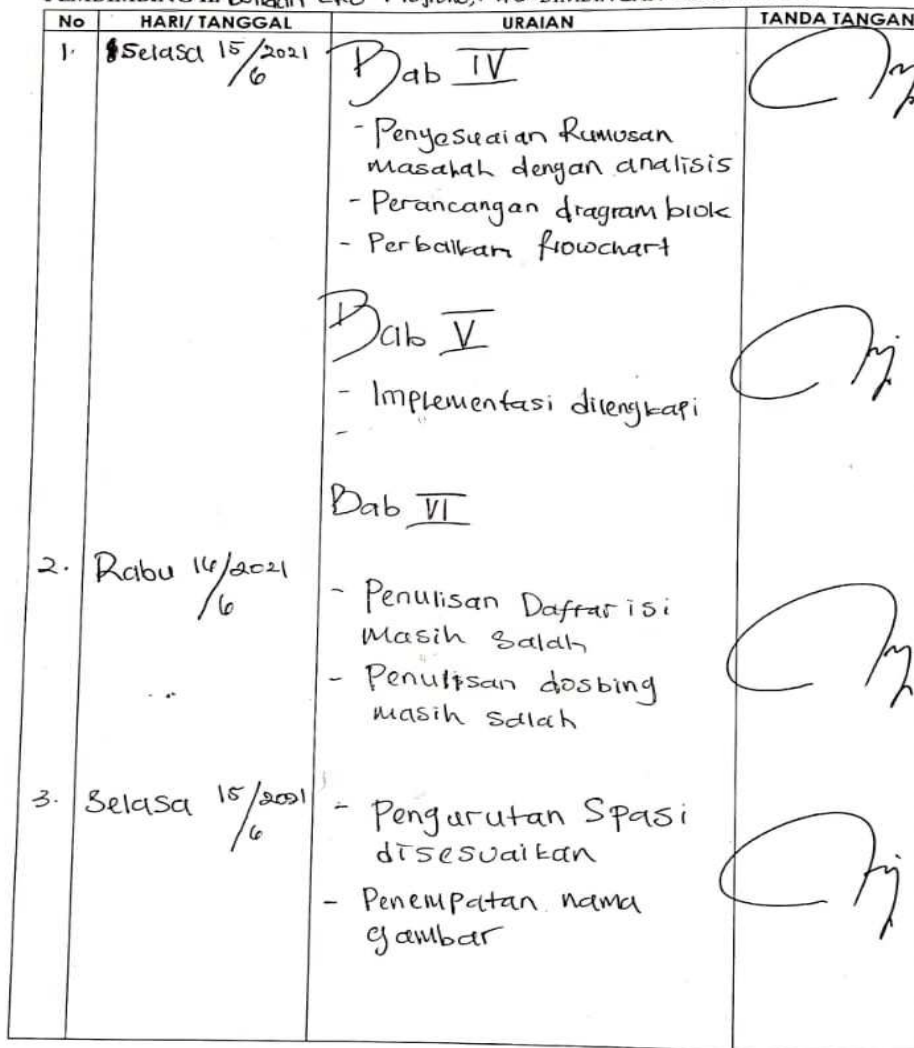 No HARI/ TANGGAL URAIAN TANDA TANGAN
1. Selasa 15/6/2021
Bab IV
- Penyesuaian Rumusan
masalah dengan analisis
- Perancangan diagram blok
- Perbaikan flowchart
Bab V
- Implementasi dilengkapi
-
Bab VI
2. Rabu 16/6/2021
- Penulisan Daftar isi
masih salah
- Penulisan dosbing
masih salah
3. Selasa 15/6/2021
- Pengurutan Spasi
disesuaikan
- Penempatan nama
gambar